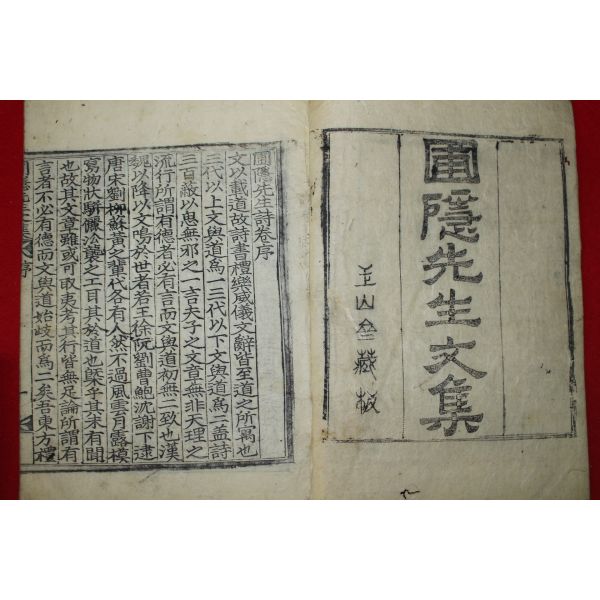 圃隱先生文集
山
藏板
圃隱先生詩卷序
文以載道故詩書禮樂威儀文辭皆至道之所寓也
三代以上文與道爲一三代以下文與道爲二盖詩
三百蔽以思無邪之一言夫子之文章無非天理之
流行所謂有德者必有言而文與道初無二致也漢
魏以降以文鳴於世者若王徐阮劉曹鮑沈謝下逮
唐宋劉柳蘇黃之輩代各有人然不過風雲月露模
寫物狀騈儷沿襲之工耳其於道也槩乎其未有聞
也故其文章雖或可取夷考其行皆無足論所謂有
言者不必有德而文與道始歧而爲二矣吾東方禮
序